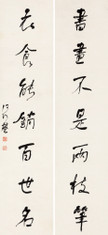 書畫不是兩枝筆
衣食能銷百世名